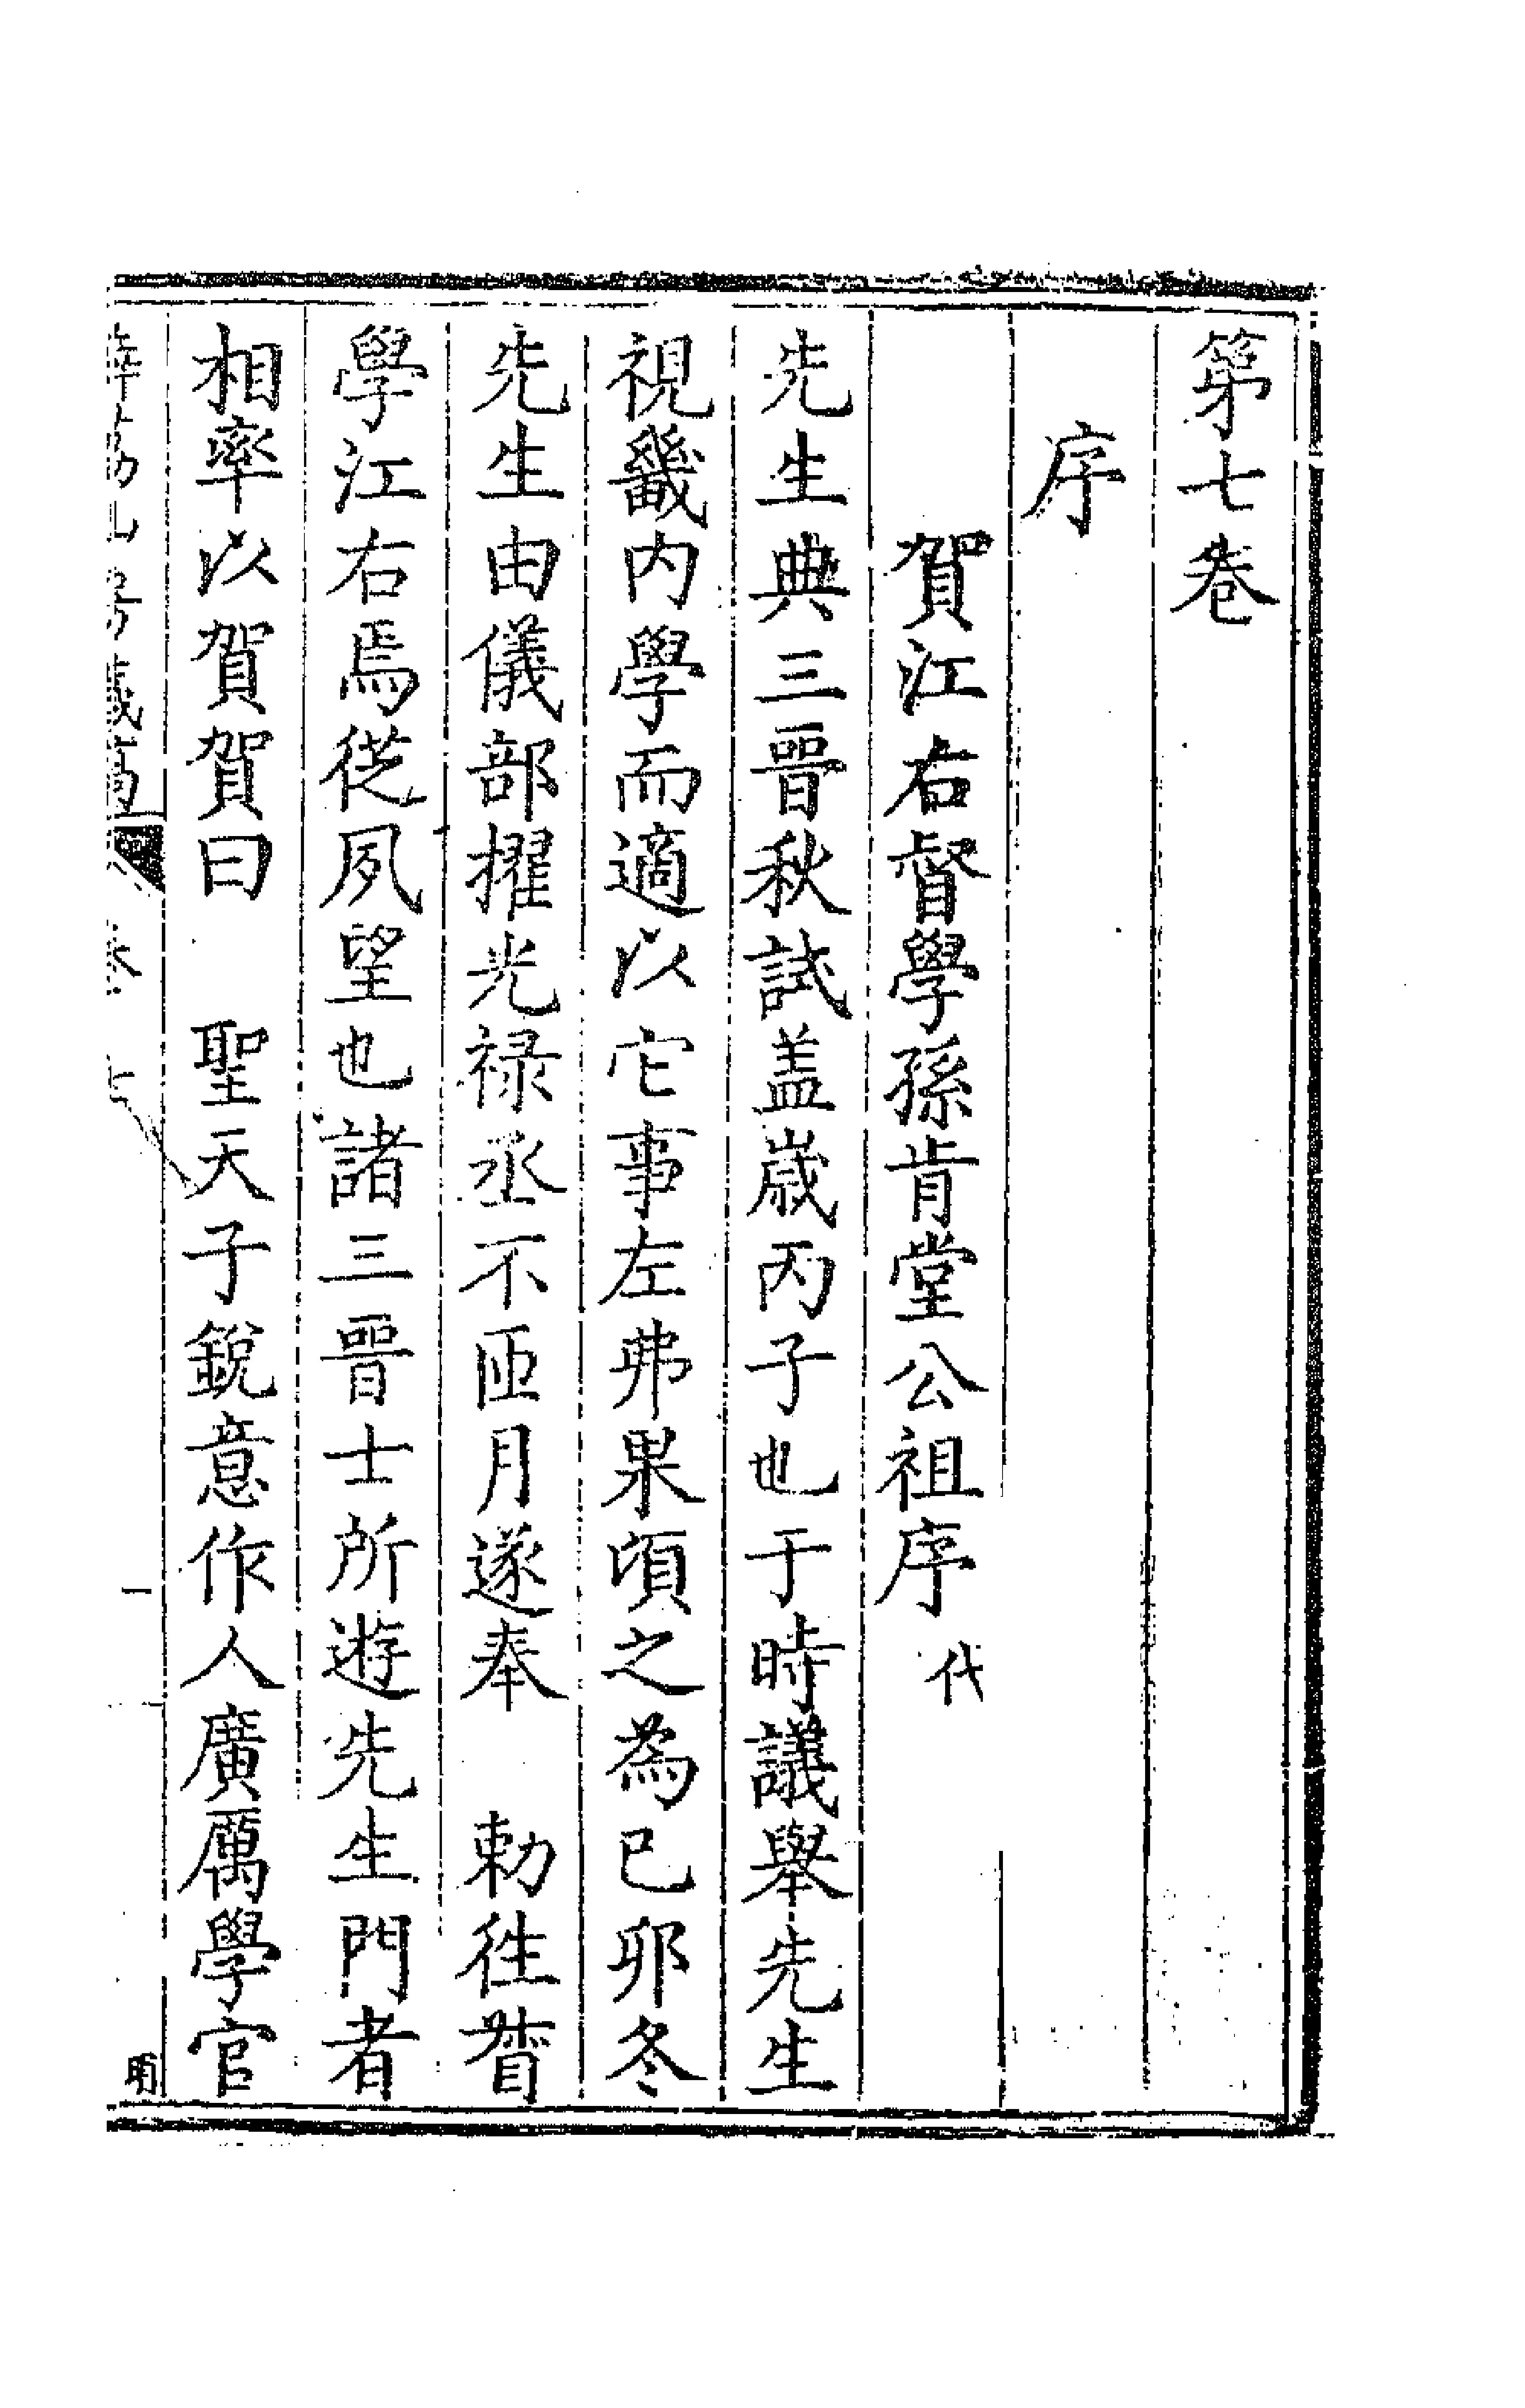 第七卷
序
賀江右督學孫肯堂公祖序 代
先生典三晉秋試盖嵗丙子也于時議舉先生
視畿内學而適以它事左弗果頃之為已卯冬
先生由儀部擢光禄丞不匝月遂奉 勅徃督
學江右焉從夙望也諸三晉士所遊先生門者
相率以賀賀曰 聖天子鋭意作人廣厲學官
房
卷 七
一